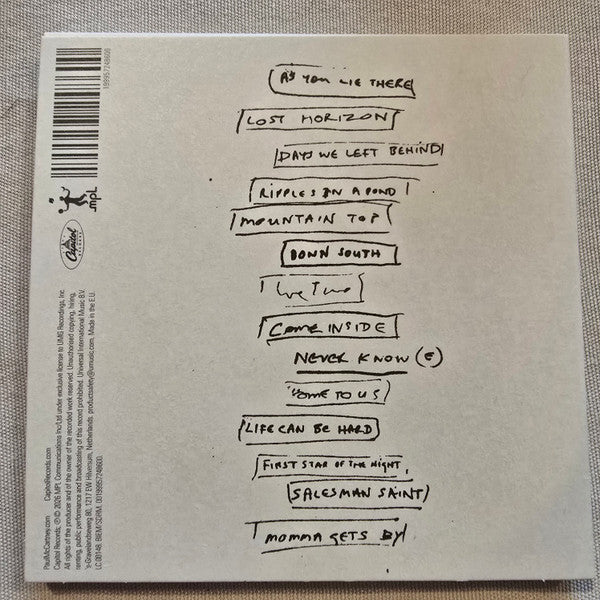 AS YOU LIE THERE
LOST HORIZON
DAYS WE LEFT BEHIND
RIPPLES IN A POND
MOUNTAIN TOP
DOWN SOUTH
We Two
COME INSIDE
NEVER KNOW (E)
HOME TO US
LIFE CAN BE HARD
FIRST STAR OF THE NIGHT
SALESMAN SAINT
MOMMA GETS BY
MPL
Capitol
RECORDS
PaulMcCartney.com CapitolRecords.com
Capitol Records; ℗ © 2026 MPL Communications Inc/Ltd under exclusive license to UMG Recordings, Inc.
All rights of the producer and of the owner of the recorded work reserved. Unauthorised copying, hiring,
renting, public performance and broadcasting of this record prohibited. Universal International Music B.V.
's-Gravelandseweg 80, 1217 EW Hilversum, Netherlands. productsafety@umusic.com. Made in the E.U.
LC 00148. BIEM/SDRM. 00199957248600.